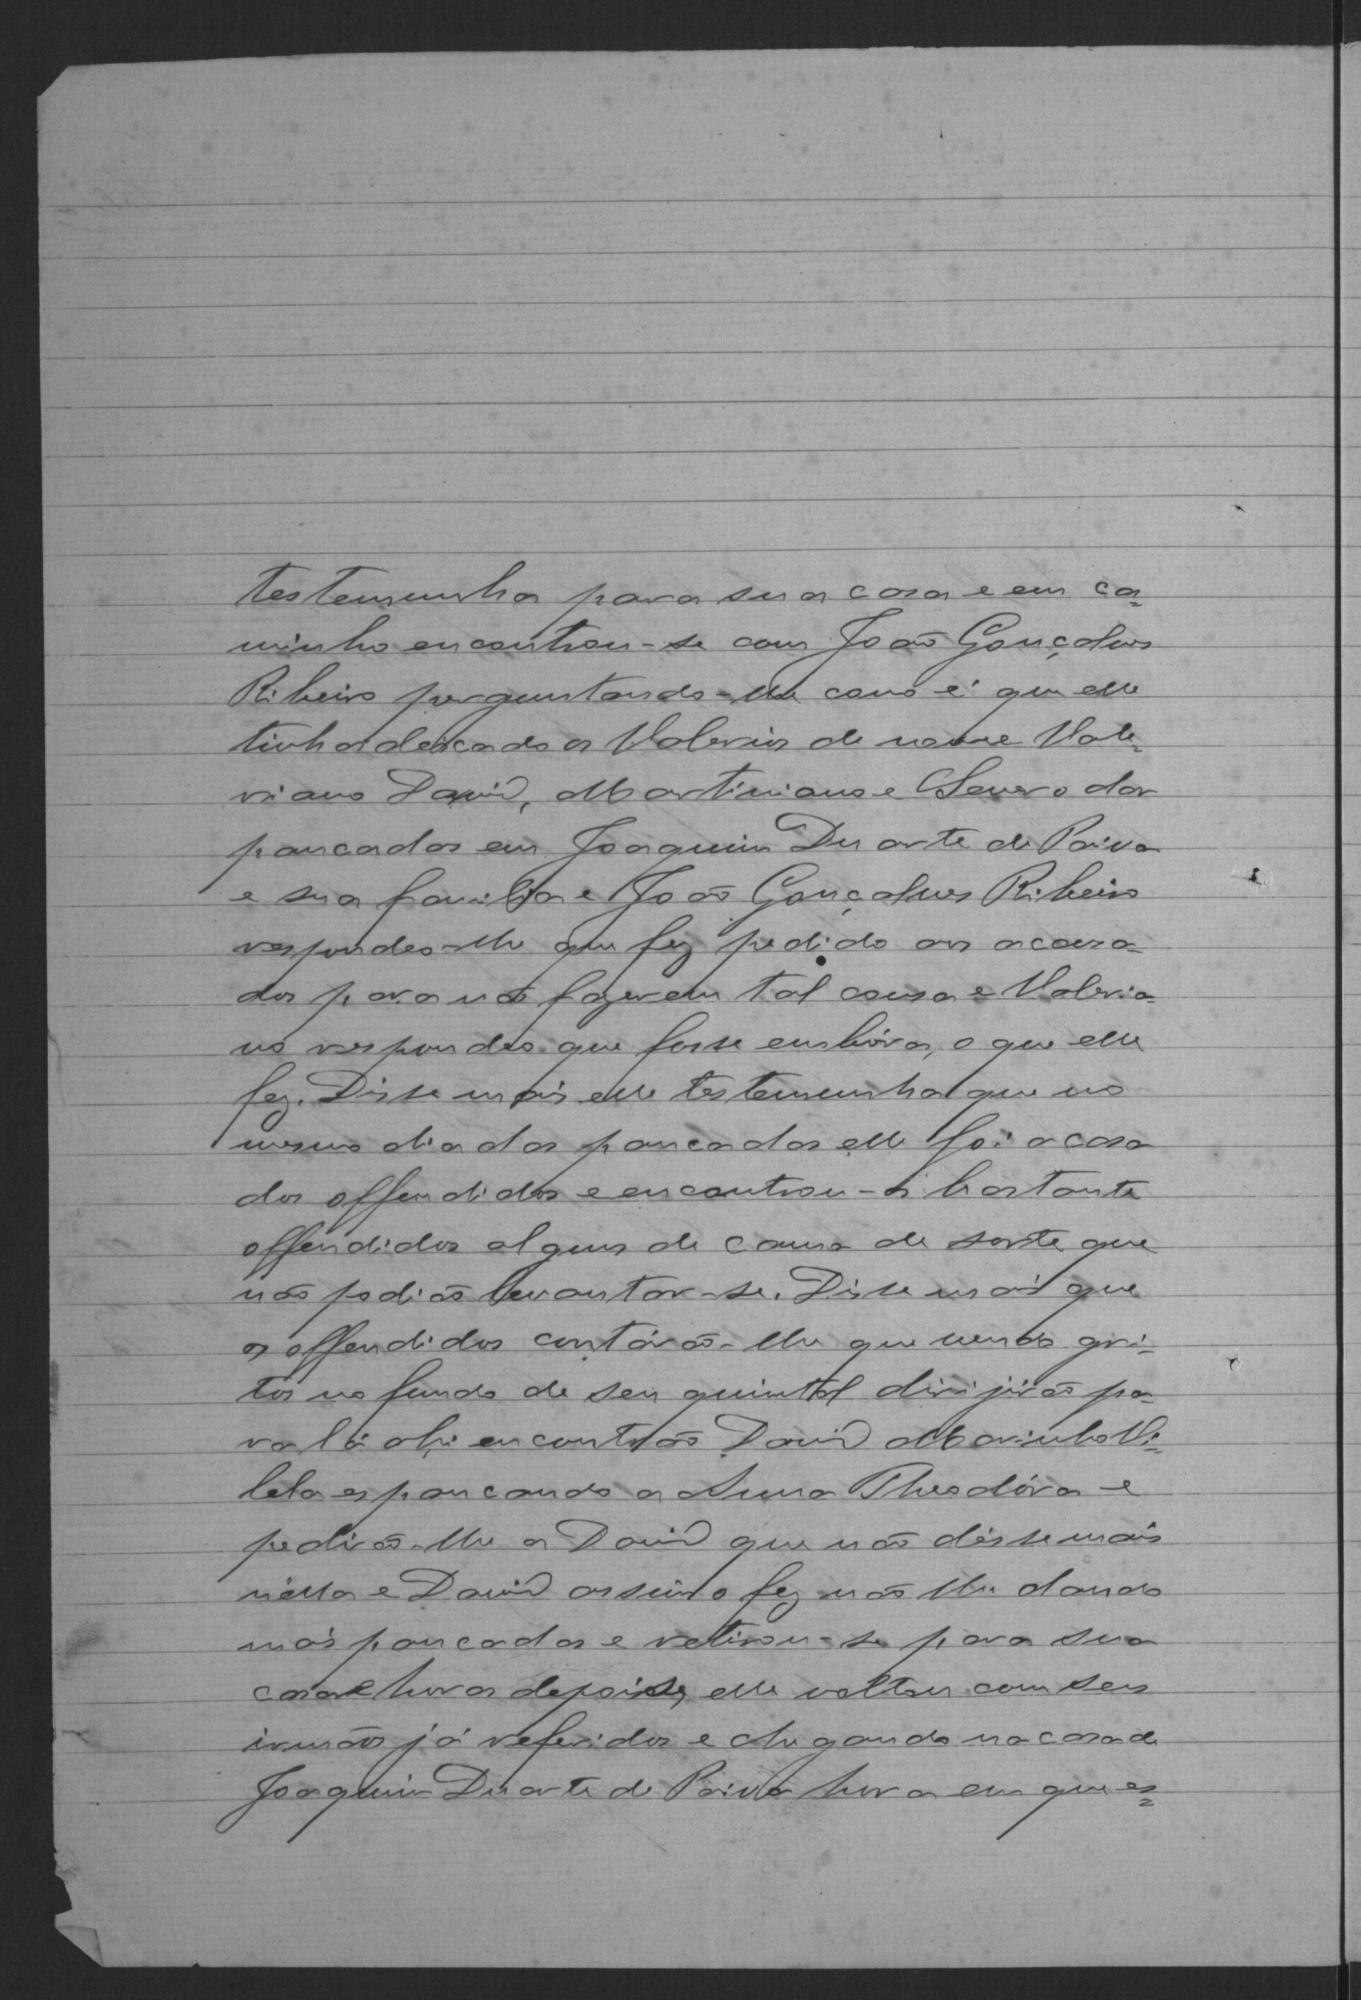 testemunha para sua casa e em ca-
minho encontrou-se com João Gonçalves
Ribeiro perguntando-lhe como é que elle
tinha deixado os Valerios de nome Vale-
riano David, Martiniano e Severo dar
pancadas em Joaquim Duarte de Paiva
e sua familia e João Gonçalves Ribeiro
respondeo-lhe que fez pedido aos acusa-
dos para não fazerem tal cousa e Valeria-
no respondeo que fosse embóra, o que elle
fez. Disse mais elle testemunha que no
mesmo dia das pancadas elle foi a casa
dos offendidos e encontrou-os bastante
offendidos alguns de cama de sorte que
não podião levantar-se. Disse mais que
os offendidos contárão-lhe que vendo gri-
tos no fundo de seu quintal dirijirão pa-
ra lá ahi encontrão David Marinho Vi-
lela espancando a Anna Theodóra e
pedirão-lhe a David que não désse mais
nella e David assim o fez não lhe dando
mais pancadas e retirou-se para sua
casa e hora depois, elle voltou com seus
irmãos já referidos e chegando na casa de
Joaquim Duarte de Paiva hora em que es-